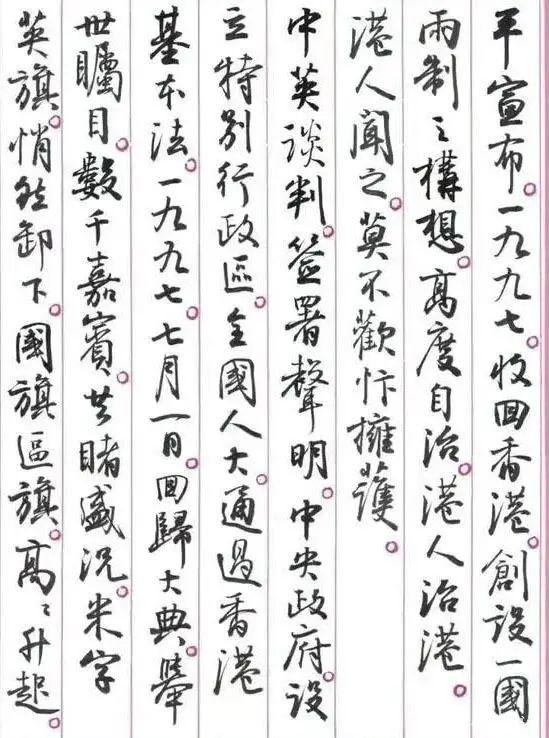 平宣布。一九九七。收回香港。創設一國
兩制之構想。高度自治。港人治港。
港人聞之。莫不歡忭擁護。
中英談判。簽署聲明。中央政府設
立特别行政區。全國人大通過香港
基本法。一九九七七月一日。回歸大典。舉
世矚目。數千嘉賓。共睹盛況。米字
英旗。悄然卸下。國旗區旗。高々升起。